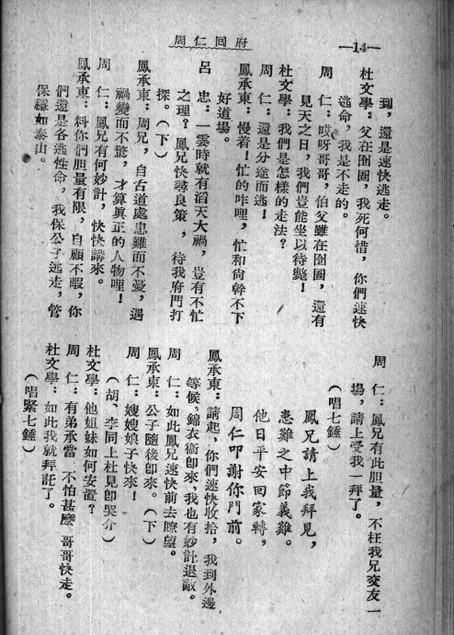 周仁回府
—14—
到，還是速快逃走。
杜文學：父在囹圄，我死何惜，你們速快
逃命，我是不走的。
周　仁：哎呀哥哥，伯父雖在囹圄，還有
見天之日，我們豈能坐以待斃！
杜文學：我們是怎樣的走法？
周　仁：還是分途而逃！
鳳承東：慢着！忙的咋哩，忙和尙幹不下
好道場。
呂　忠：一霎時就有滔天大禍，豈有不忙
之理？鳳兄快尋良策，待我府門打
探。（下）
鳳承東：周兄，自古道處患難而不憂，遇
禍變而不驚，才算眞正的人物哩！
周　仁：鳳兄有何妙計，快快講來。
鳳承東：料你們胆量有限，自顧不暇，你
們還是各逃性命，我保公子逃走，管
保穩如泰山。
周　仁：鳳兄有此胆量，不枉我兄交友一
場，請上受我一拜了。
（唱七錘）
鳳兄請上我拜見，
患難之中節義難。
他日平安回家轉，
周仁叩謝你門前。
鳳承東：請起，你們速快收拾，我到外邊
等候，錦衣衞卽來，我也有妙計退敵。
周　仁：如此鳳兄速快前去瞭望。
鳳承東：公子隨後卽來。（下）
周　仁：嫂嫂娘子快來！
（胡、李同上杜見卽哭介）
杜文學：他姐妹如何安置？
周　仁：有弟承當，不怕甚麼，哥哥快走。
杜文學：如此我就拜託了。
（唱緊七錘）